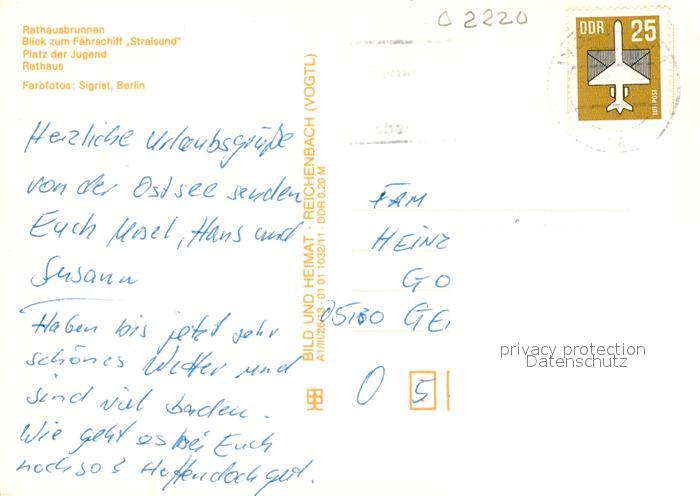 O 2220
Rathausbrunnen
Blick zum Fährschiff „Stralsund"
Platz der Jugend
Rathaus
Farbfotos: Sigrist, Berlin
DDR 25
LUFTPOST
Herzliche Urlaubsgrüße
von der Ostsee senden
Euch Mosel, Hans und
Susann
Haben bis jetzt sehr
schönes Wetter und
sind viel baden.
Wie geht es bei Euch
noch so? Hoffen doch gut.
BILD UND HEIMAT · REICHENBACH (VOGTL)
A1/III/26/13 01 01 1032/11 · DDR 0,20 M
FAM
HEINZ
GO
05130 GE
O 5
privacy protection
Datenschutz